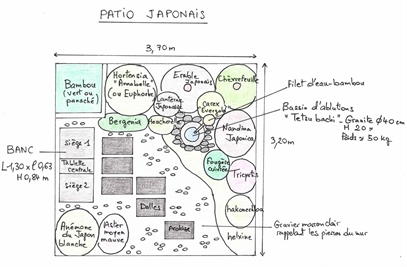 PATIO JAPONAIS
3,70m
Bambou
(vert ou
panaché)
Hortensia
"Annabelle"
(ou Euphorbe)
Erable
Japonais
Chèvrefeuille
Lanterne
Japonaise
Carex
Evergold
Filet d'eau-bambou
Bergenia
Heuchère
Bassin d'ablutions
"Tetsu bachi" Granite Ø 40cm
H 20 x
Poids ≈ 50 kg
Nandina
Japonica
3,20m
BANC
L=1,30 x l 0,63
H 0,84 m
Siège 1
Tablette
centrale
Siège 2
Fougère
Tricyrtis
Anémone
du Japon
blanche
Aster
moyen
mauve
Dalles
hakonechloa
helxine
Gravier marron clair
rappelant les pierres du mur